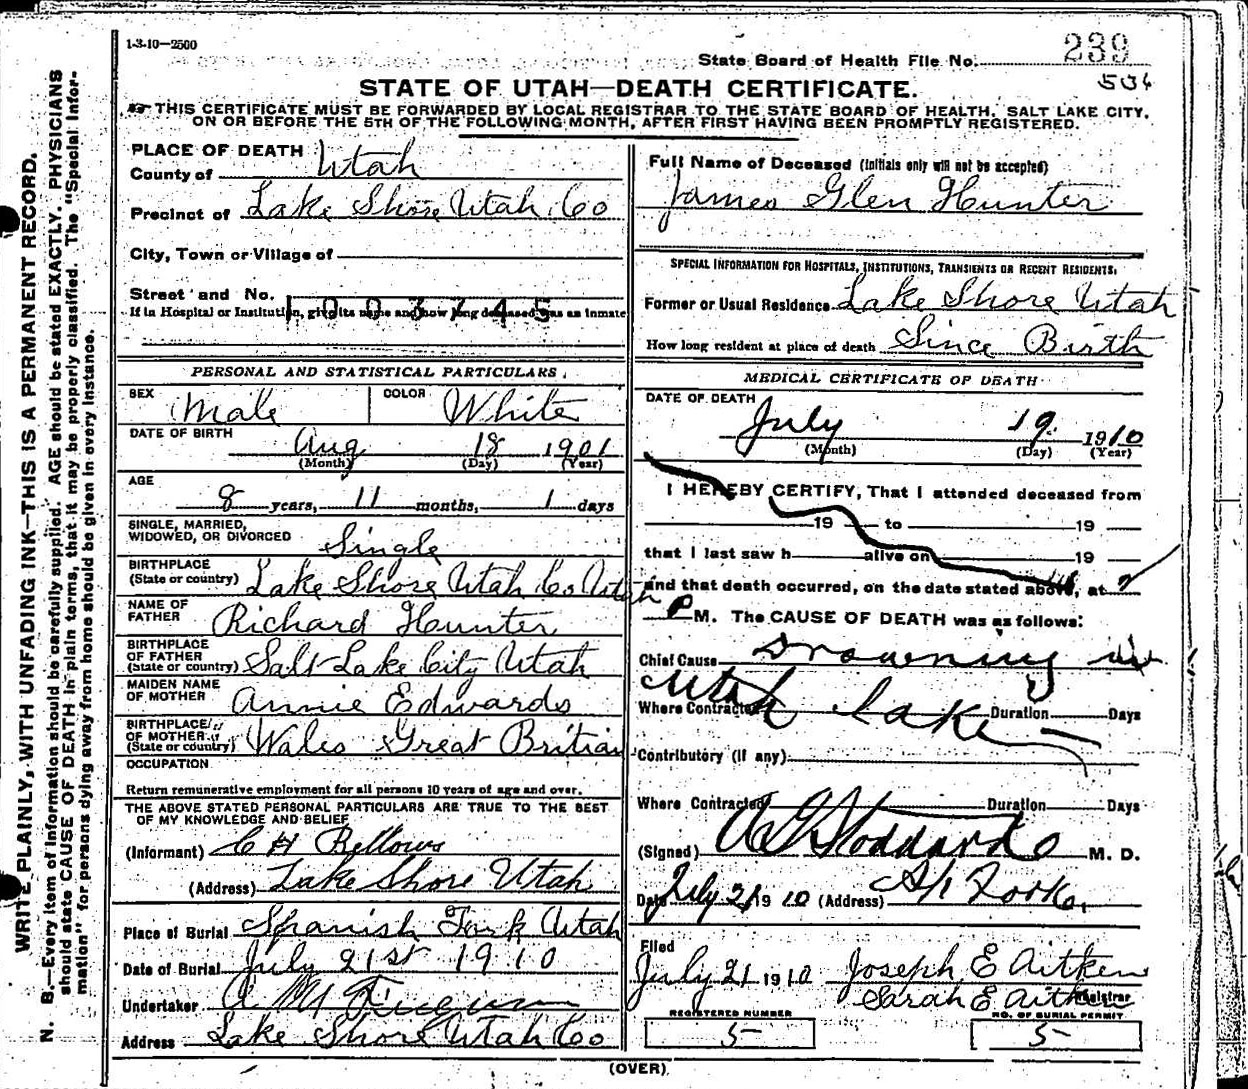 1-3-10—2500
State Board of Health File No. 239
534
STATE OF UTAH—DEATH CERTIFICATE.
THIS CERTIFICATE MUST BE FORWARDED BY LOCAL REGISTRAR TO THE STATE BOARD OF HEALTH, SALT LAKE CITY,
ON OR BEFORE THE 5TH OF THE FOLLOWING MONTH, AFTER FIRST HAVING BEEN PROMPTLY REGISTERED.
WRITE PLAINLY, WITH UNFADING INK—THIS IS A PERMANENT RECORD.
N. B.—Every item of information should be carefully supplied. AGE should be stated EXACTLY. PHYSICIANS
should state CAUSE OF DEATH in plain terms, that it may be properly classified. The "Special Infor-
mation" for persons dying away from home should be given in every instance.
PLACE OF DEATH
County of Utah
Precinct of Lake Shore Utah Co
City, Town or Village of
Street and No.
1003745
If in Hospital or Institution, give its name and how long deceased was an inmate
PERSONAL AND STATISTICAL PARTICULARS.
SEX Male COLOR White
DATE OF BIRTH Aug 18 1901
(Month) (Day) (Year)
AGE
8 years, 11 months, 1 days
SINGLE, MARRIED,
WIDOWED, OR DIVORCED Single
BIRTHPLACE
(State or country) Lake Shore Utah Co Utah
NAME OF
FATHER Richard Hunter
BIRTHPLACE
OF FATHER
(State or country) Salt Lake City Utah
MAIDEN NAME
OF MOTHER Annie Edwards
BIRTHPLACE
OF MOTHER
(State or country) Wales Great Britian
OCCUPATION
Return remunerative employment for all persons 10 years of age and over.
THE ABOVE STATED PERSONAL PARTICULARS ARE TRUE TO THE BEST
OF MY KNOWLEDGE AND BELIEF
(Informant) C H Bellows
(Address) Lake Shore Utah
Place of Burial Spanish Fork Utah
Date of Burial July 21st 1910
Undertaker A M Ferguson
Address Lake Shore Utah Co
Full Name of Deceased (Initials only will not be accepted)
James Glen Hunter
SPECIAL INFORMATION FOR HOSPITALS, INSTITUTIONS, TRANSIENTS OR RECENT RESIDENTS.
Former or Usual Residence Lake Shore Utah
How long resident at place of death Since Birth
MEDICAL CERTIFICATE OF DEATH
DATE OF DEATH
July 19 1910
(Month) (Day) (Year)
I HEREBY CERTIFY, That I attended deceased from
19 to 19
that I last saw h alive on 19
and that death occurred, on the date stated above, at
P M. The CAUSE OF DEATH was as follows:
Chief Cause Drowning in
Utah Lake
Where Contracted Duration Days
Contributory (if any)
Where Contracted Duration Days
(Signed) Stoddard M. D.
Date July 21 1910 (Address)
Filed
July 21 1910 Joseph E Aitken
Sarah E Aitken
Registrar
REGISTERED NUMBER
5
NO. OF BURIAL PERMIT
5
(OVER)